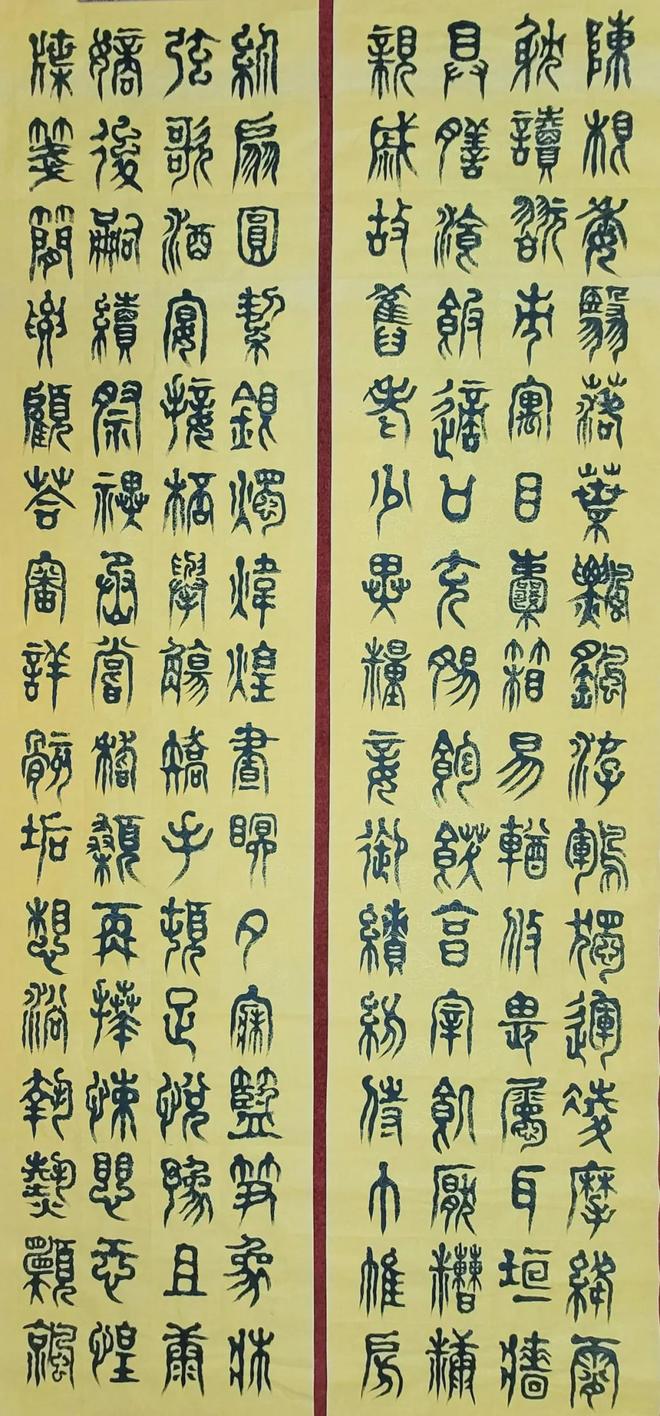 陳根委翳落葉飄颻游鶤獨運凌摩絳霄
耽讀翫市寓目囊箱易輶攸畏屬耳垣牆
具膳飡飯適口充腸飽飫亯宰飢厭糟糠
親戚故舊老少異糧妾御績紡侍巾帷房
紈扇圓絜銀燭煒煌晝眠夕寐籃筍象牀
弦歌酒宴接桮舉觴矯手頓足悅豫且康
嫡後嗣續祭禩烝嘗稽顙再拜悚懼恐惶
牒箋簡要顧答審詳骸垢想浴執熱願涼